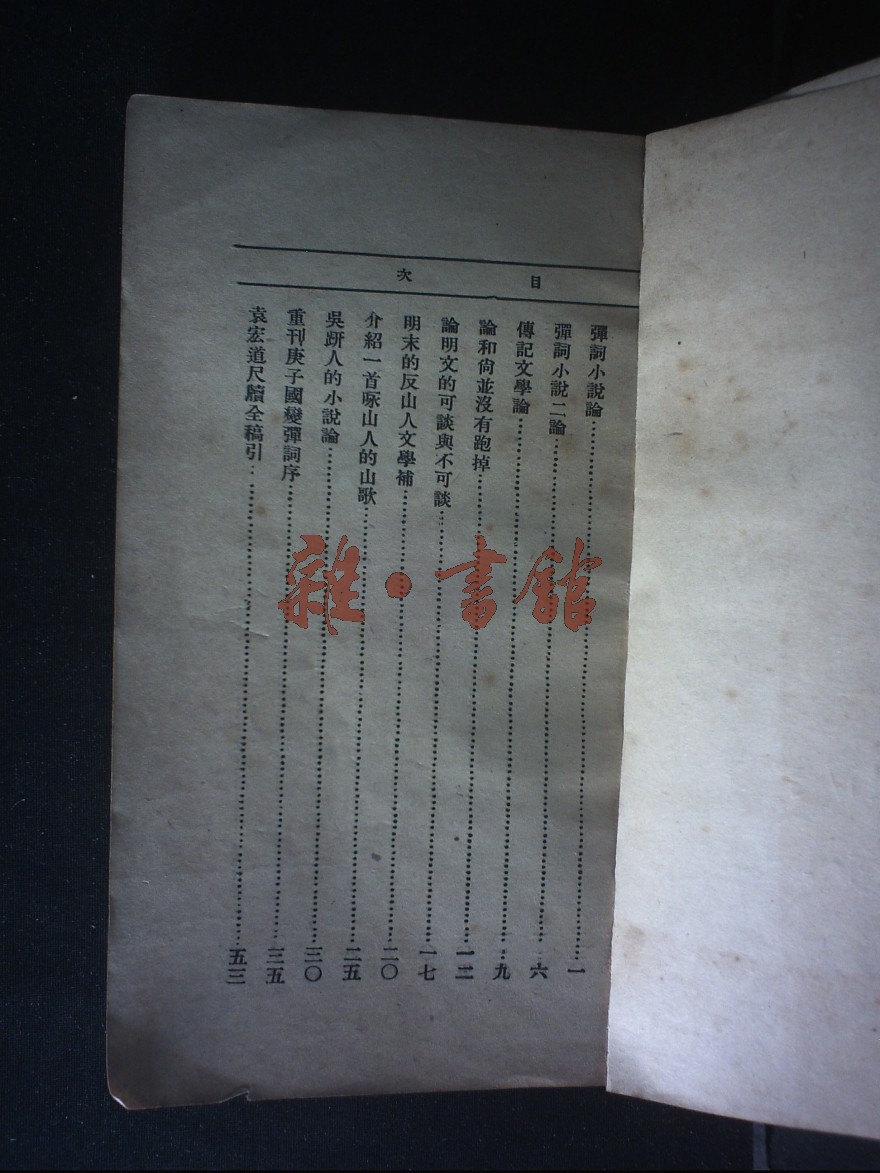 目次
彈詞小說論……一
彈詞小說二論……六
傳記文學論……九
論和尙並沒有跑掉……一二
論明文的可談與不可談……一七
明末的反山人文學補……二〇
介紹一首咏山人的山歌……二五
吳趼人的小說論……三〇
重刊庚子國變彈詞序……三五
袁宏道尺牘全稿引……五三
雜·書館